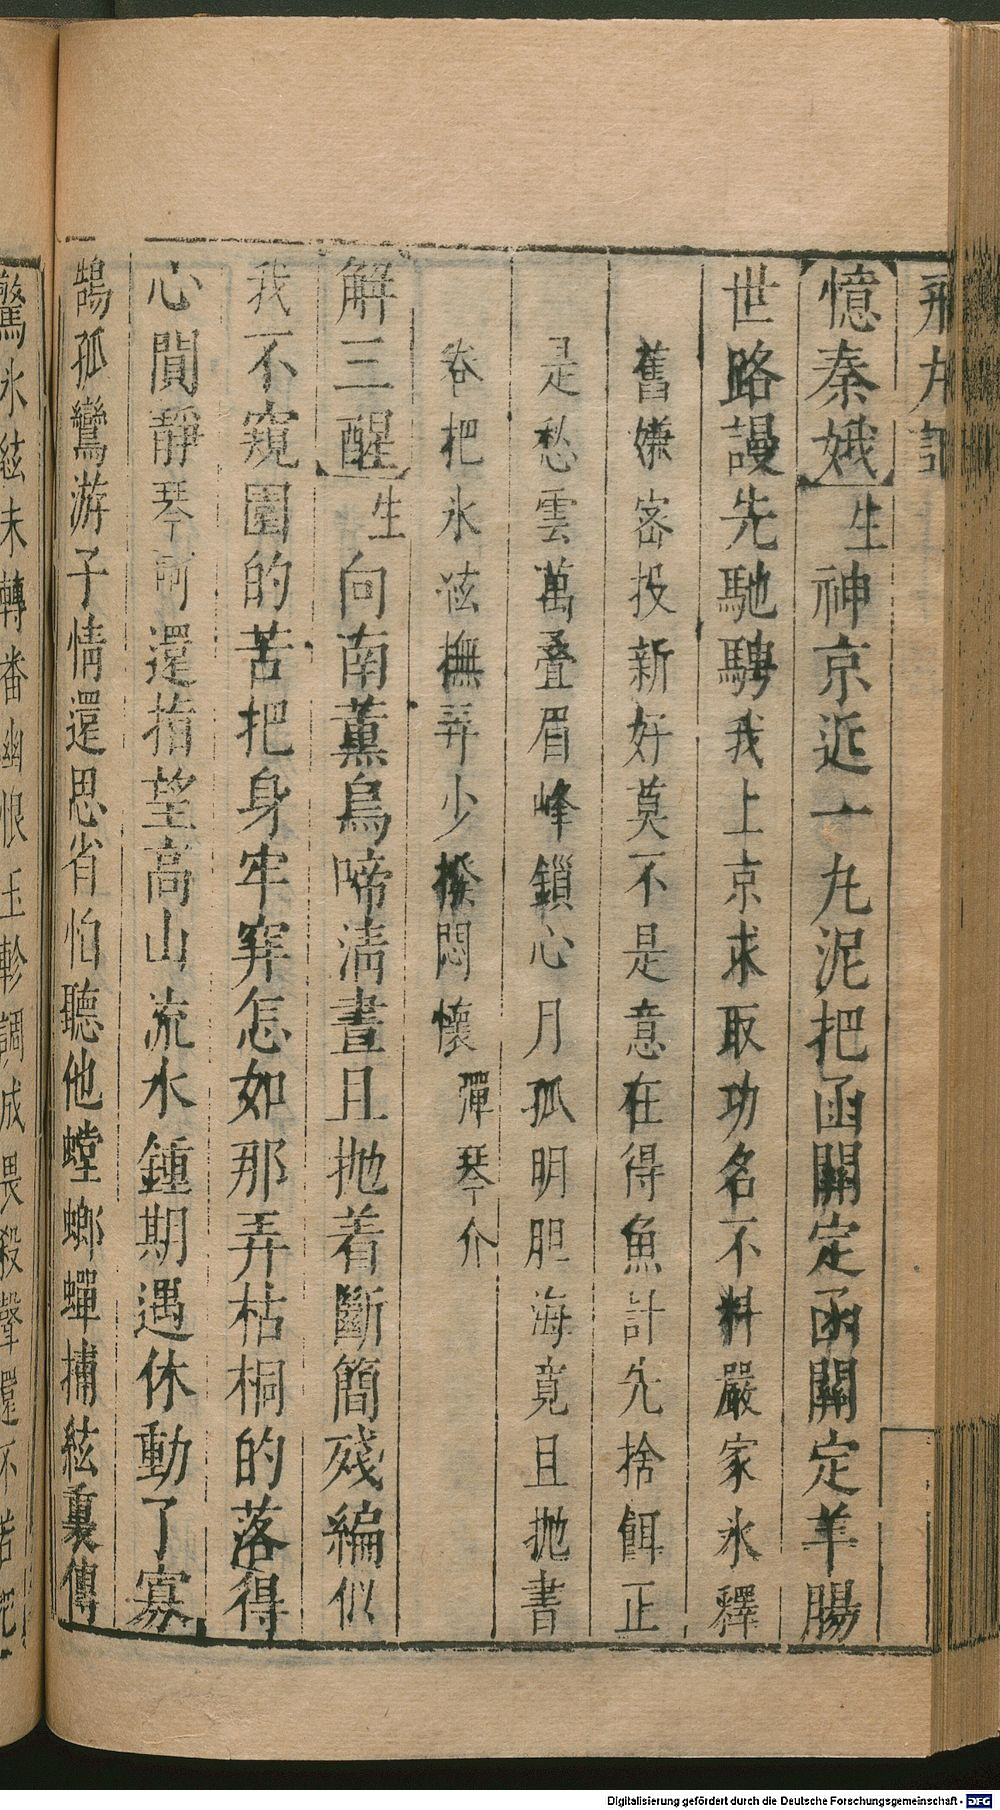 飛丸記
憶秦娥 生 神京近一丸泥把函關定函關定羊腸
世路謾先馳騁 我上京求取功名不料嚴家氷釋
舊嫌密投新好莫不是意在得魚計先捨餌正
是愁雲萬叠眉峰鎖心月孤明胆海竟且抛書
卷把氷泫撫弄少撥悶懷 彈琴介
解三醒 生 向南薰烏啼淸晝且抛着斷簡殘編似
我不窺園的苦把身牢穽怎如那弄枯桐的落得
心閒靜 琴呵 還指望高山流水鍾期遇休動了寡
鵠孤鸞游子情還思省怕聽他螳螂蟬捕絃裏傳
驚氷絃未轉番幽恨玉軫調成畏殺聲還不若把
Digitalisierung gefördert durch die Deutsche Forschungsgemeinschaft - DFG